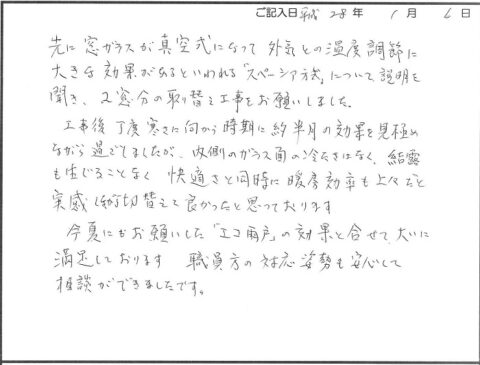 ご記入日 平成 28 年 1 月 6 日
先に窓ガラスが真空式になって外気との温度調節に
大きな効果があるといわれる「スペーシア方式」について説明を
聞き、2窓分の取り替え工事をお願いしました。
工事後丁度寒さに向かう時期に約半月の効果を見極め
ながら過ごしてましたが、内側のガラス面の冷たさはなく、結露
も生じることなく 快適さと同時に暖房効率も上々だと
実感し 替えて良かったと思っております
今夏にもお願いした「エコ雨戸」の効果と合せて、大いに
満足しております 職員方の対応姿勢も安心して
相談ができましたです。